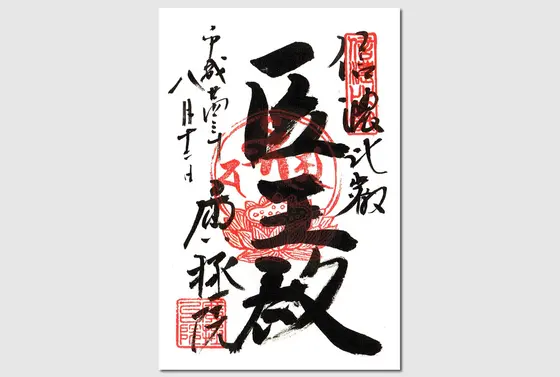 信濃比叡
医王殿
平成廿四年
八月十二日
廣拯院